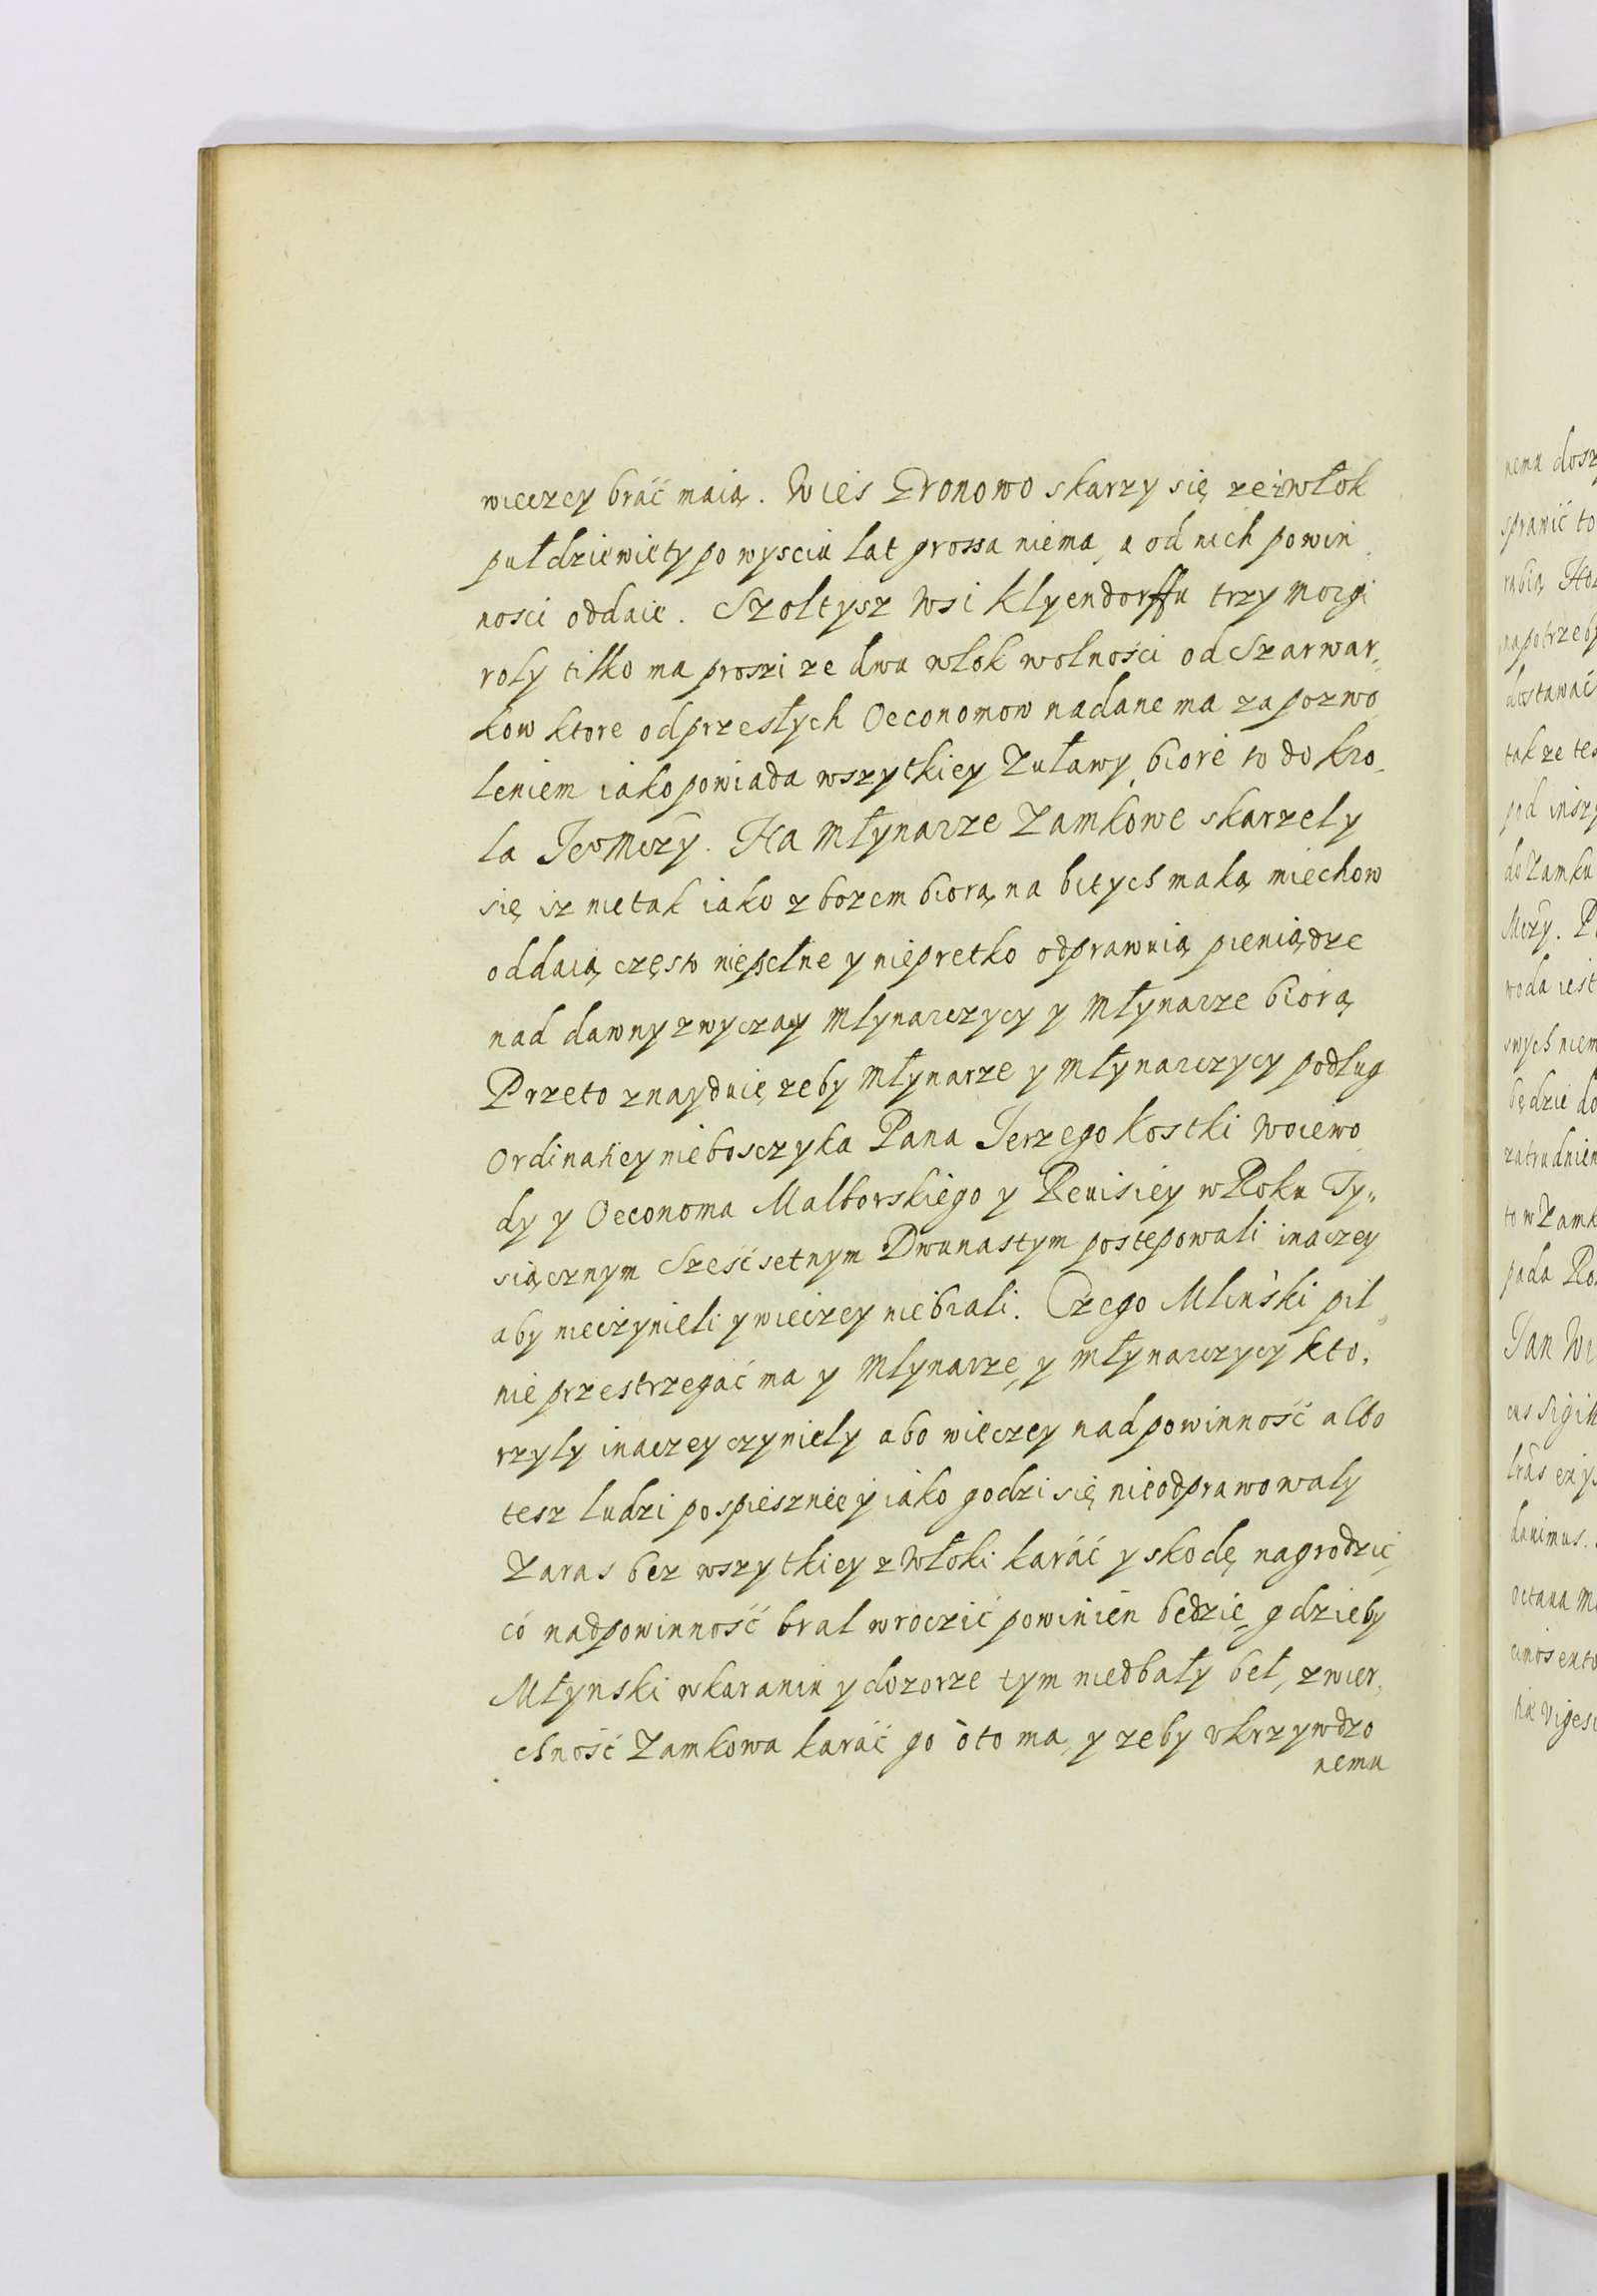 wieczey brać maią. Wies Dronowo skarzy się ze z włok
puł dziewięty po wysciu lat grossa niema, a od nich powin,
nosci oddaie. Szoltysz wsi Klyendorffu trzy morgi
roly tilko ma proszi ze dwu włok wolności od Szarwar,
kow ktore od przesłych Oeconomow nadane ma za pozwo
leniem iako powiada wszytkiey Zuławy, biorę to do kro,
la Jeo Mczy. Na Młynarze Zamkowe skarzely
się isz nie tak iako zbozem biorą na bitych mąką miechow
oddaią, często niepełne y niepretko odprawuią pieniądze
nad dawny zwyczay Mlynarczycy y Młynarze biorą
Przeto znayduię zeby Młynarze y Młynarczycy podług
Ordinaticy niebosczyka Pana Jerzego Kostki Woiewo
dy y Oeconoma Malborskiego y Reuisiey w Roku Ty,,
siącznym Sześćsetnym Dwunastym postępowali inaczey
aby nieczynieli y wieczey niebrali. Czego Mliński pil,
nie przestrzegać ma y Mlynarze, y Młynarczycy kto,
rzyly inaczey czyniely abo wieczey nad powinność albo
tesz ludzi pospieszniey iako godzi się nieodprawowaly
Zaras bez wszytkiey zwłoki karáć y skodę nagrodzić,
có nadpowinność bral wroczić powinien będzie, gdzieby
Młynski w karaniu y dozorze tym niedbały beł, zwier,
chność Zamkowa karáć go o to ma, y zeby vkrzywdzo
nemu
nema dosz
sprawić to
rabią
napotrzeby
dostawáć
tak ze tes
pod inszy
do Zamku
Mczy. P
woda iest
swych niem
będzie do
zatrudnien
to w Zamk
pada
Jan Wi
cus Sigil
danimus.
octaua